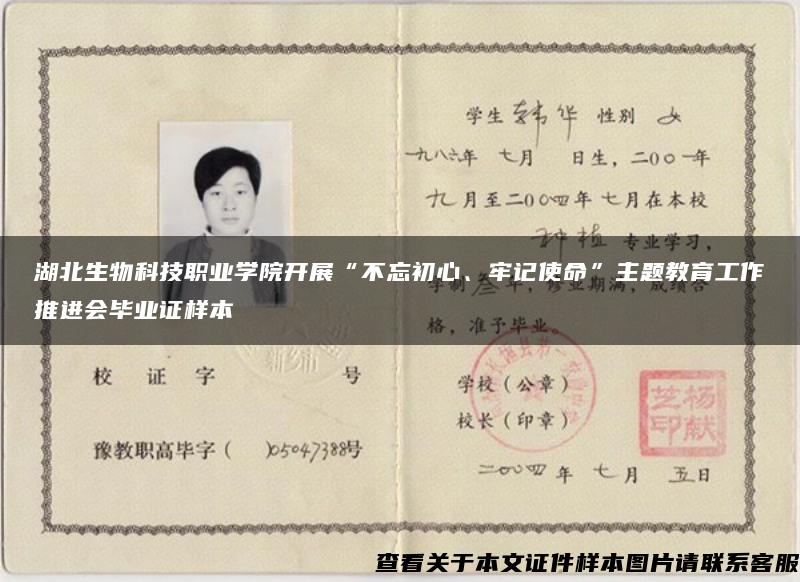 学生 韩华 性别 女
一九八六年 七月 日生，二00一年
九月至二00四年七月在本校
种植 专业学习，
湖北生物科技职业学院开展“不忘初心、牢记使命”主题教育工作
推进会毕业证样本
学制叁年，修业期满，成绩合
格，准予毕业。
校 证 字 号
学校（公章）
校长（印章）
杨献芝印
豫教职高毕字（ ）05047388号
二00四年 七月 五日
查看关于本文证件样本图片请联系客服